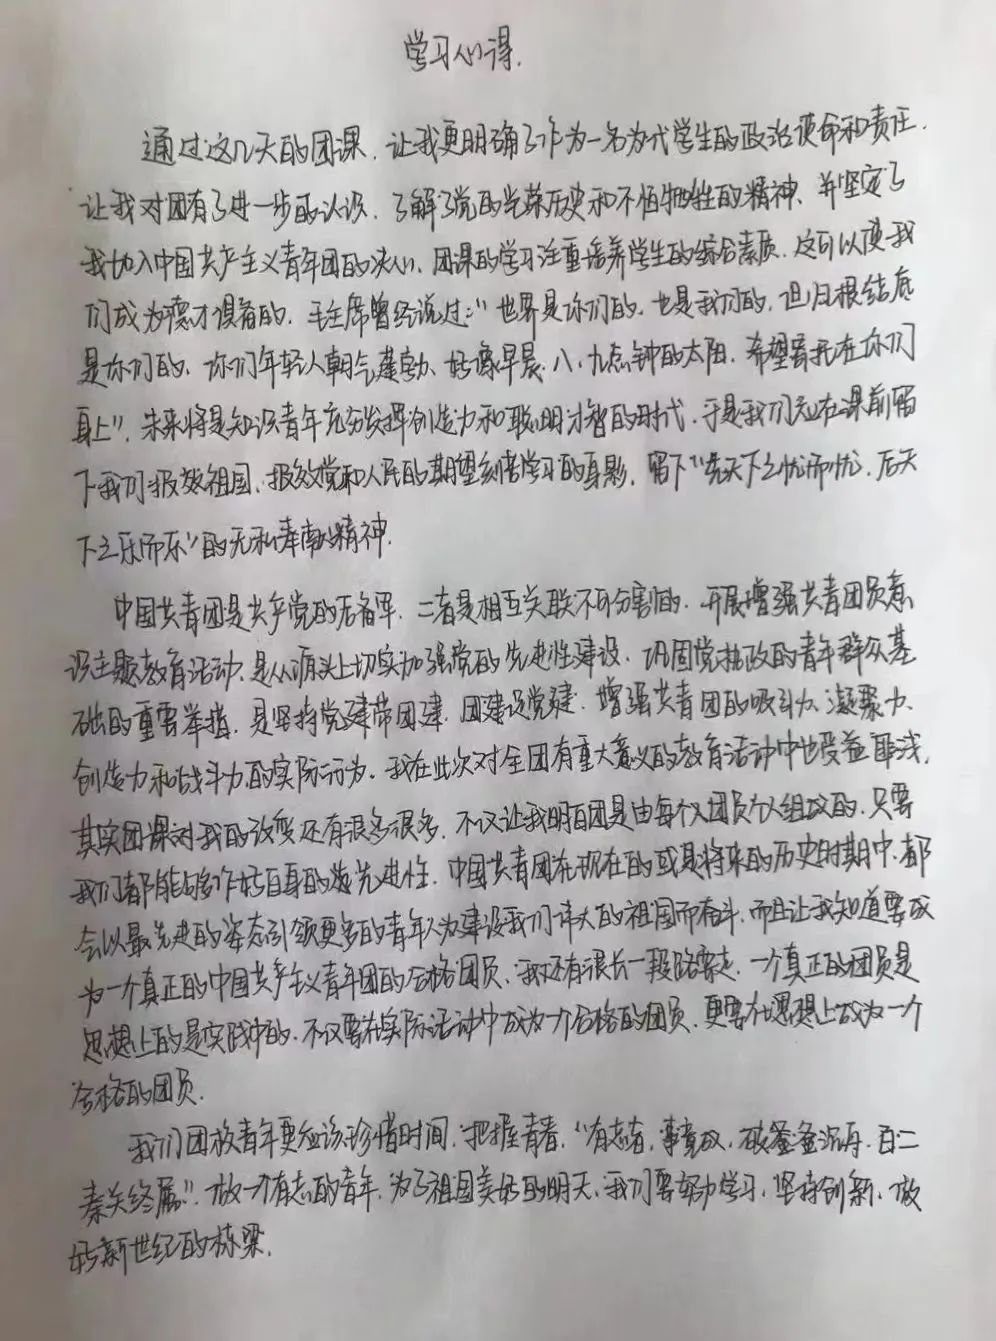 学习心得.
通过这几天的团课,让我更明确了作为一名当代学生的政治使命和责任.
让我对团有了进一步的认识.了解了党的光荣历史和不怕牺牲的精神、并坚定了
我加入中国共产主义青年团的决心.团课的学习注重培养学生的综合素质.这可以使我
们成为德才俱备的.毛主席曾经说过:"世界是你们的.也是我们的.但归根结底
是你们的.你们年轻人朝气蓬勃、好像早晨八、九点钟的太阳.希望寄托在你们
身上".未来将是知识青年充分发挥创造力和聪明才智的时代.于是我们在课前留
下我们报效祖国、报效党和人民的期望刻苦学习的身影,留下"先天下之忧而忧,后天
下之乐而乐"的无私奉献精神.
中国共青团是共产党的后备军.二者是相互关联不可分割的.开展增强共青团员意
识主题教育活动、是从源头上切实加强党的先进性建设、巩固党执政的青年群众基
础的重要举措.是坚持党建带团建.团建促党建.增强共青团的吸引力、凝聚力、
创造力和战斗力的实际行为.我在此次对全团有重大意义的教育活动中也受益匪浅.
其实团课对我的改变还有很多很多.不仅让我明白团是由每个团员个人组成的.只要
我们都能够作好自身的先进性.中国共青团在现在的或是将来的历史时期中.都
会以最先进的姿态引领更多的青年人为建设我们伟大的祖国而奋斗.而且让我知道要成
为一个真正的中国共产主义青年团的合格团员、我还有很长一段路要走.一个真正的团员是
思想上的是实践中的.不仅要在实际活动中成为一个合格的团员.更要在思想上成为一个
合格的团员.
我们团校青年更应该珍惜时间,把握青春,"有志者,事竟成,破釜沉舟.百二
秦关终属".做一个有志的青年,为了祖国美好的明天.我们要努力学习.坚持创新.做
好新世纪的栋梁.